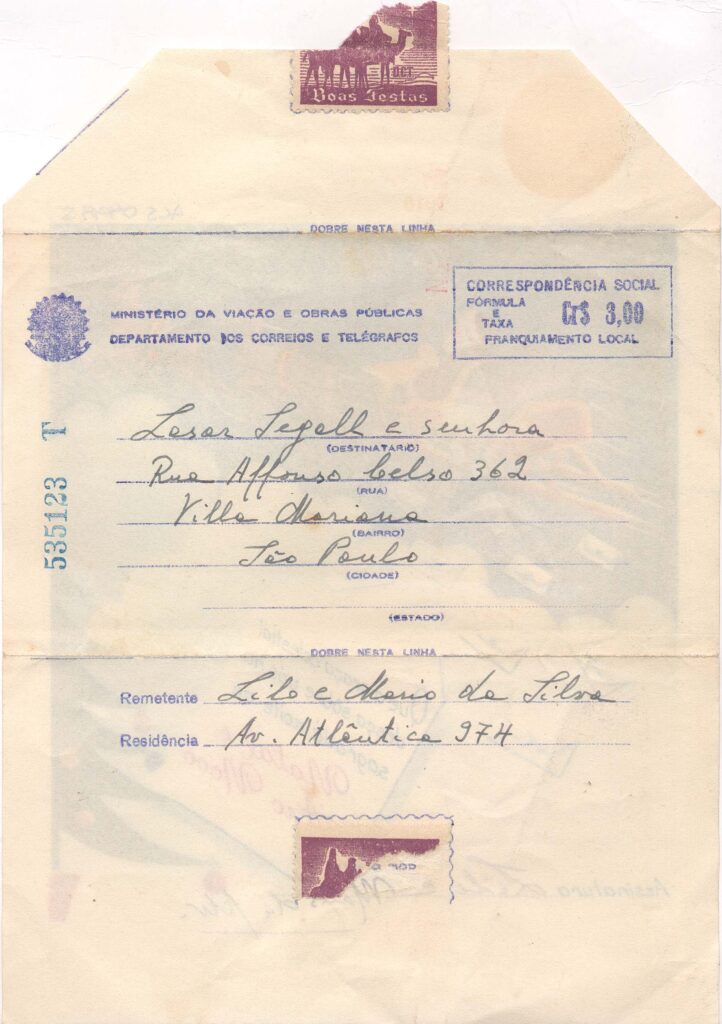 DCT
Boas Festas
DOBRE NESTA LINHA
CORRESPONDÊNCIA SOCIAL
FÓRMULA E TAXA Cr$ 3,00
FRANQUIAMENTO LOCAL
MINISTÉRIO DA VIAÇÃO E OBRAS PÚBLICAS
DEPARTAMENTO DOS CORREIOS E TELÉGRAFOS
535123 T
Lasar Segall e senhora
(DESTINATÁRIO)
Rua Affonso Celso 362
(RUA)
Villa Mariana
(BAIRRO)
São Paulo
(CIDADE)
(ESTADO)
DOBRE NESTA LINHA
Remetente Lilo e Mario da Silva
Residência Av. Atlântica 974
Assinatura